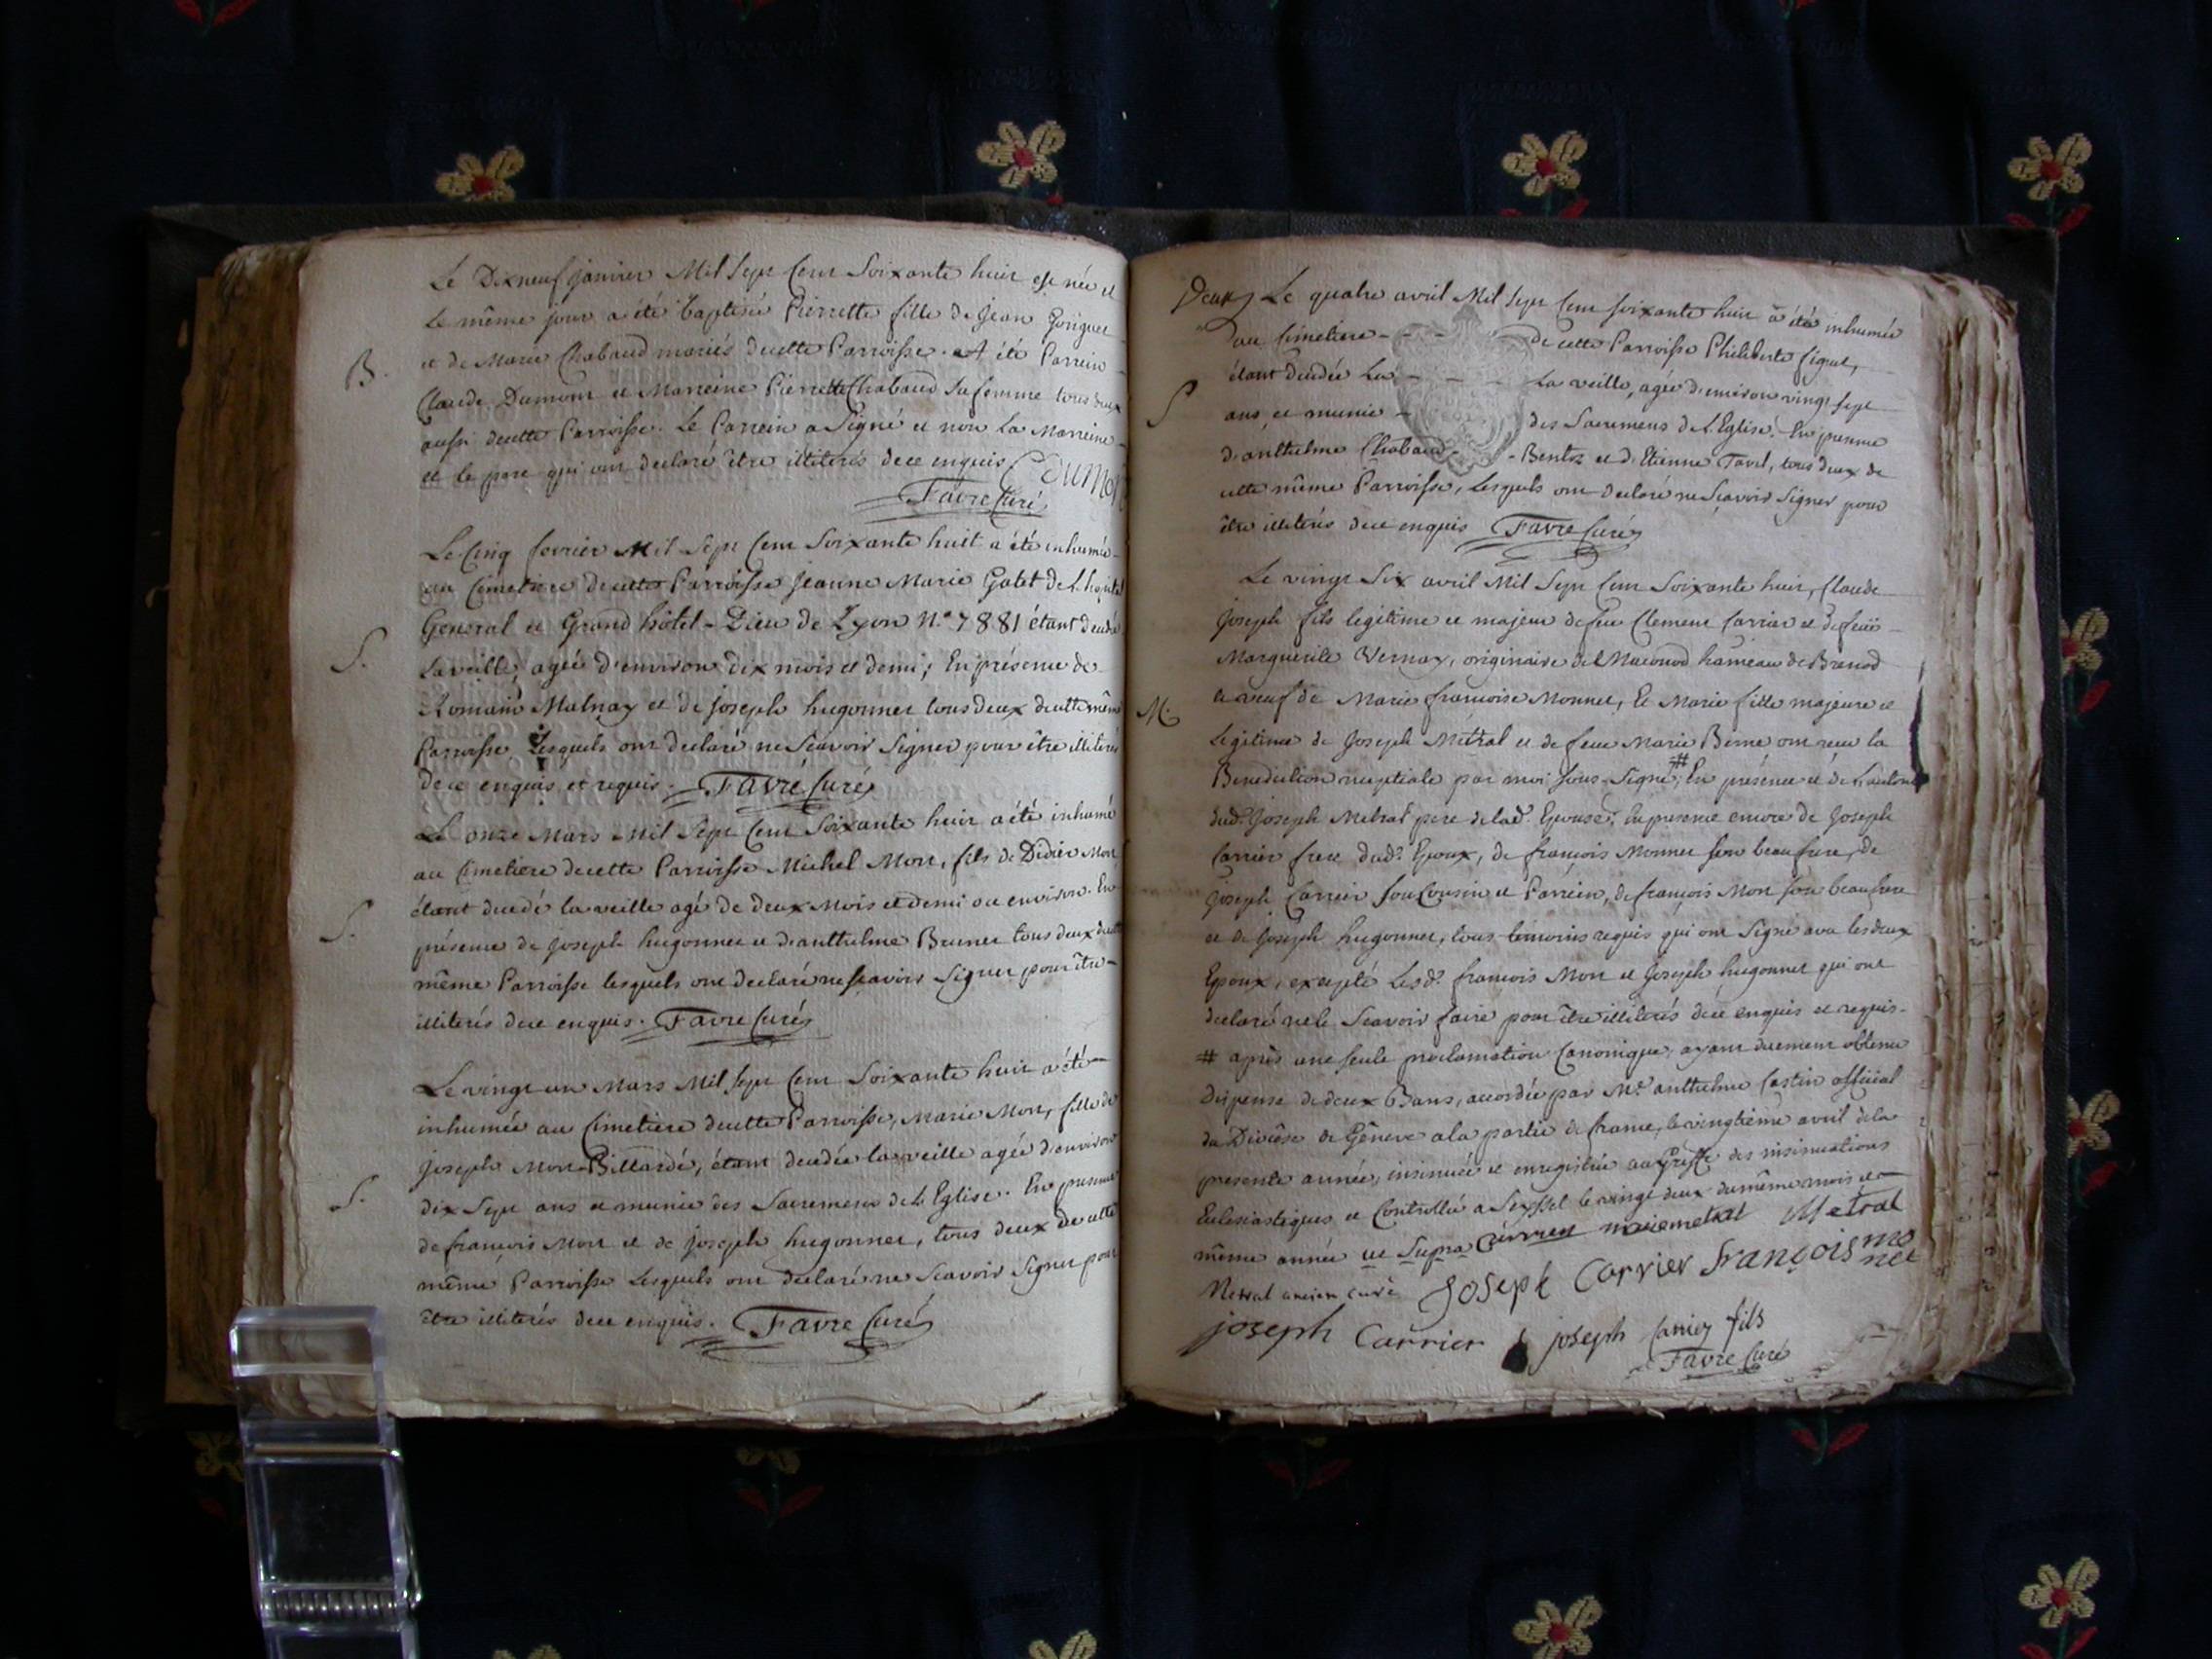 Le Dixneuf janvier Mil Sept Cent Soixante huit est née et
le même jour a été baptisée Pierrette fille de Jean
B. et de Marie Chabaud mariés de cette Parroisse. A été Parrein
Claude Dumont et Marreine Pierrette Chabaud sa femme tous deux
aussi de cette Parroisse. Le Parrein a Signé et non la Marreine
et le pere qui ont declaré être illiterés de ce enquis Dumon
Favre Curé
Le Cinq fevrier Mil Sept Cent Soixante huit a été inhumée
au Cimetiere de cette Parroisse Jeanne Marie Gatet de L'hopital
General et Grand hôtel-Dieu de Lyon N.° 7881 étant decedée
S. La veille, agée d'environ dix mois et demi; En présence de
Romain Malnay et de joseph hugonnet tous deux de cette même
Parroisse Lesquels ont declaré ne Scavoir Signer pour être illiterés
de ce enquis et requis. Favre Curé
Le onze Mars Mil Sept Cent Soixante huit a été inhumé
au Cimetiere de cette Parroisse Michel Mon, fils de Didier Mon
S. étant decedé la veille agé de deux Mois et demi ou environ. En
présence de joseph hugonnet et d'anthelme Brunet tous deux de cette
même Parroisse lesquels ont declaré ne scavoir Signer pour être
illiterés de ce enquis. Favre Curé
Le vingt un Mars Mil Sept Cent Soixante huit a été
inhumée au Cimetiere de cette Parroisse, Marie Mon, fille de
joseph Mon Billardé, étant decedée la veille agée d'environ
S. dix Sept ans et munie des Sacremens de L'Eglise. En presence
de françois Mon et de joseph hugonnet, tous deux de cette
même Parroisse Lesquels ont declaré ne Scavoir Signer pour
être illiterés de ce enquis. Favre Curé
Deux Le quatre avril Mil Sept Cent soixante huit a été inhumée
au Cimetiere - - - de cette Parroisse Philiberte
étant decedée La - - - La veille, agée d'environ vingt sept
S ans et munie - des Sacremens de L'Eglise. En presence
d'anthelme Chabaud - et d'Etienne Tavel, tous deux de
cette même Parroisse, Lesquels ont declaré ne Scavoir Signer pour
être illiterés de ce enquis Favre Curé
Le vingt Six avril Mil Sept Cent Soixante huit, Claude
Joseph fils legitime et majeur de feu Clement Carrier et de feüe
Marguerite Vernay, originaire de hameau de Brenod
M. et veuf de Marie françoise Monnet, Et Marie fille majeure et
Legitime de Joseph Métral et de feue Marie Berne ont reçu la
Benediction nuptiale par moi sous-Signé # ; En présence et de L'autorité
dud.t Joseph Metral pere de lad.e Epouse; En presence encore de Joseph
Carrier frere dud.t Epoux, de françois Monnet son beau frere, de
Joseph Carrier son Cousin et Parrein, de françois Mon son beau frere
et de Joseph hugonnet, tous temoins requis qui ont Signé avec les deux
Epoux, excepté Lesd.s françois Mon et Joseph hugonnet qui ont
declaré ne le Scavoir faire pour être illiterés de ce enquis et requis-
# après une seule proclamation Canonique, ayant duement obtenu
dispense de deux Bans, accordée par M.e anthelme Castin official
du Diocèse de Gêneve a la partie de france, le vingtième avril de la
presente année, insinuée et enregistrée au Greffe des insinuations
Eclesiastiques et Controllée a Seyssel le vingt deux du même mois et
même année ut Supra Carrier marie metral Metral
Metral ancien curé Joseph Carrier françois monet
joseph Carrier joseph Carrier fils
Favre Curé